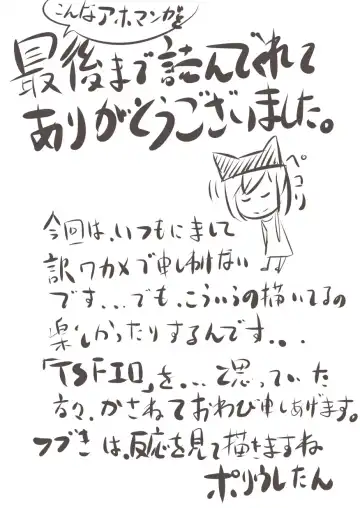 こんなアホマンガを
最後まで読んでくれて
ありがとうございました。
ペコリ
今回は、いつもにまして
訳ワカメで申しわけない
です...でも、こういうの描いてるの
楽しかったりするんです...
「TSFIO」を...と思っていた
方々、かさねておわび申しあげます。
つづきは、反応を見て描きますね
ポリウレたん